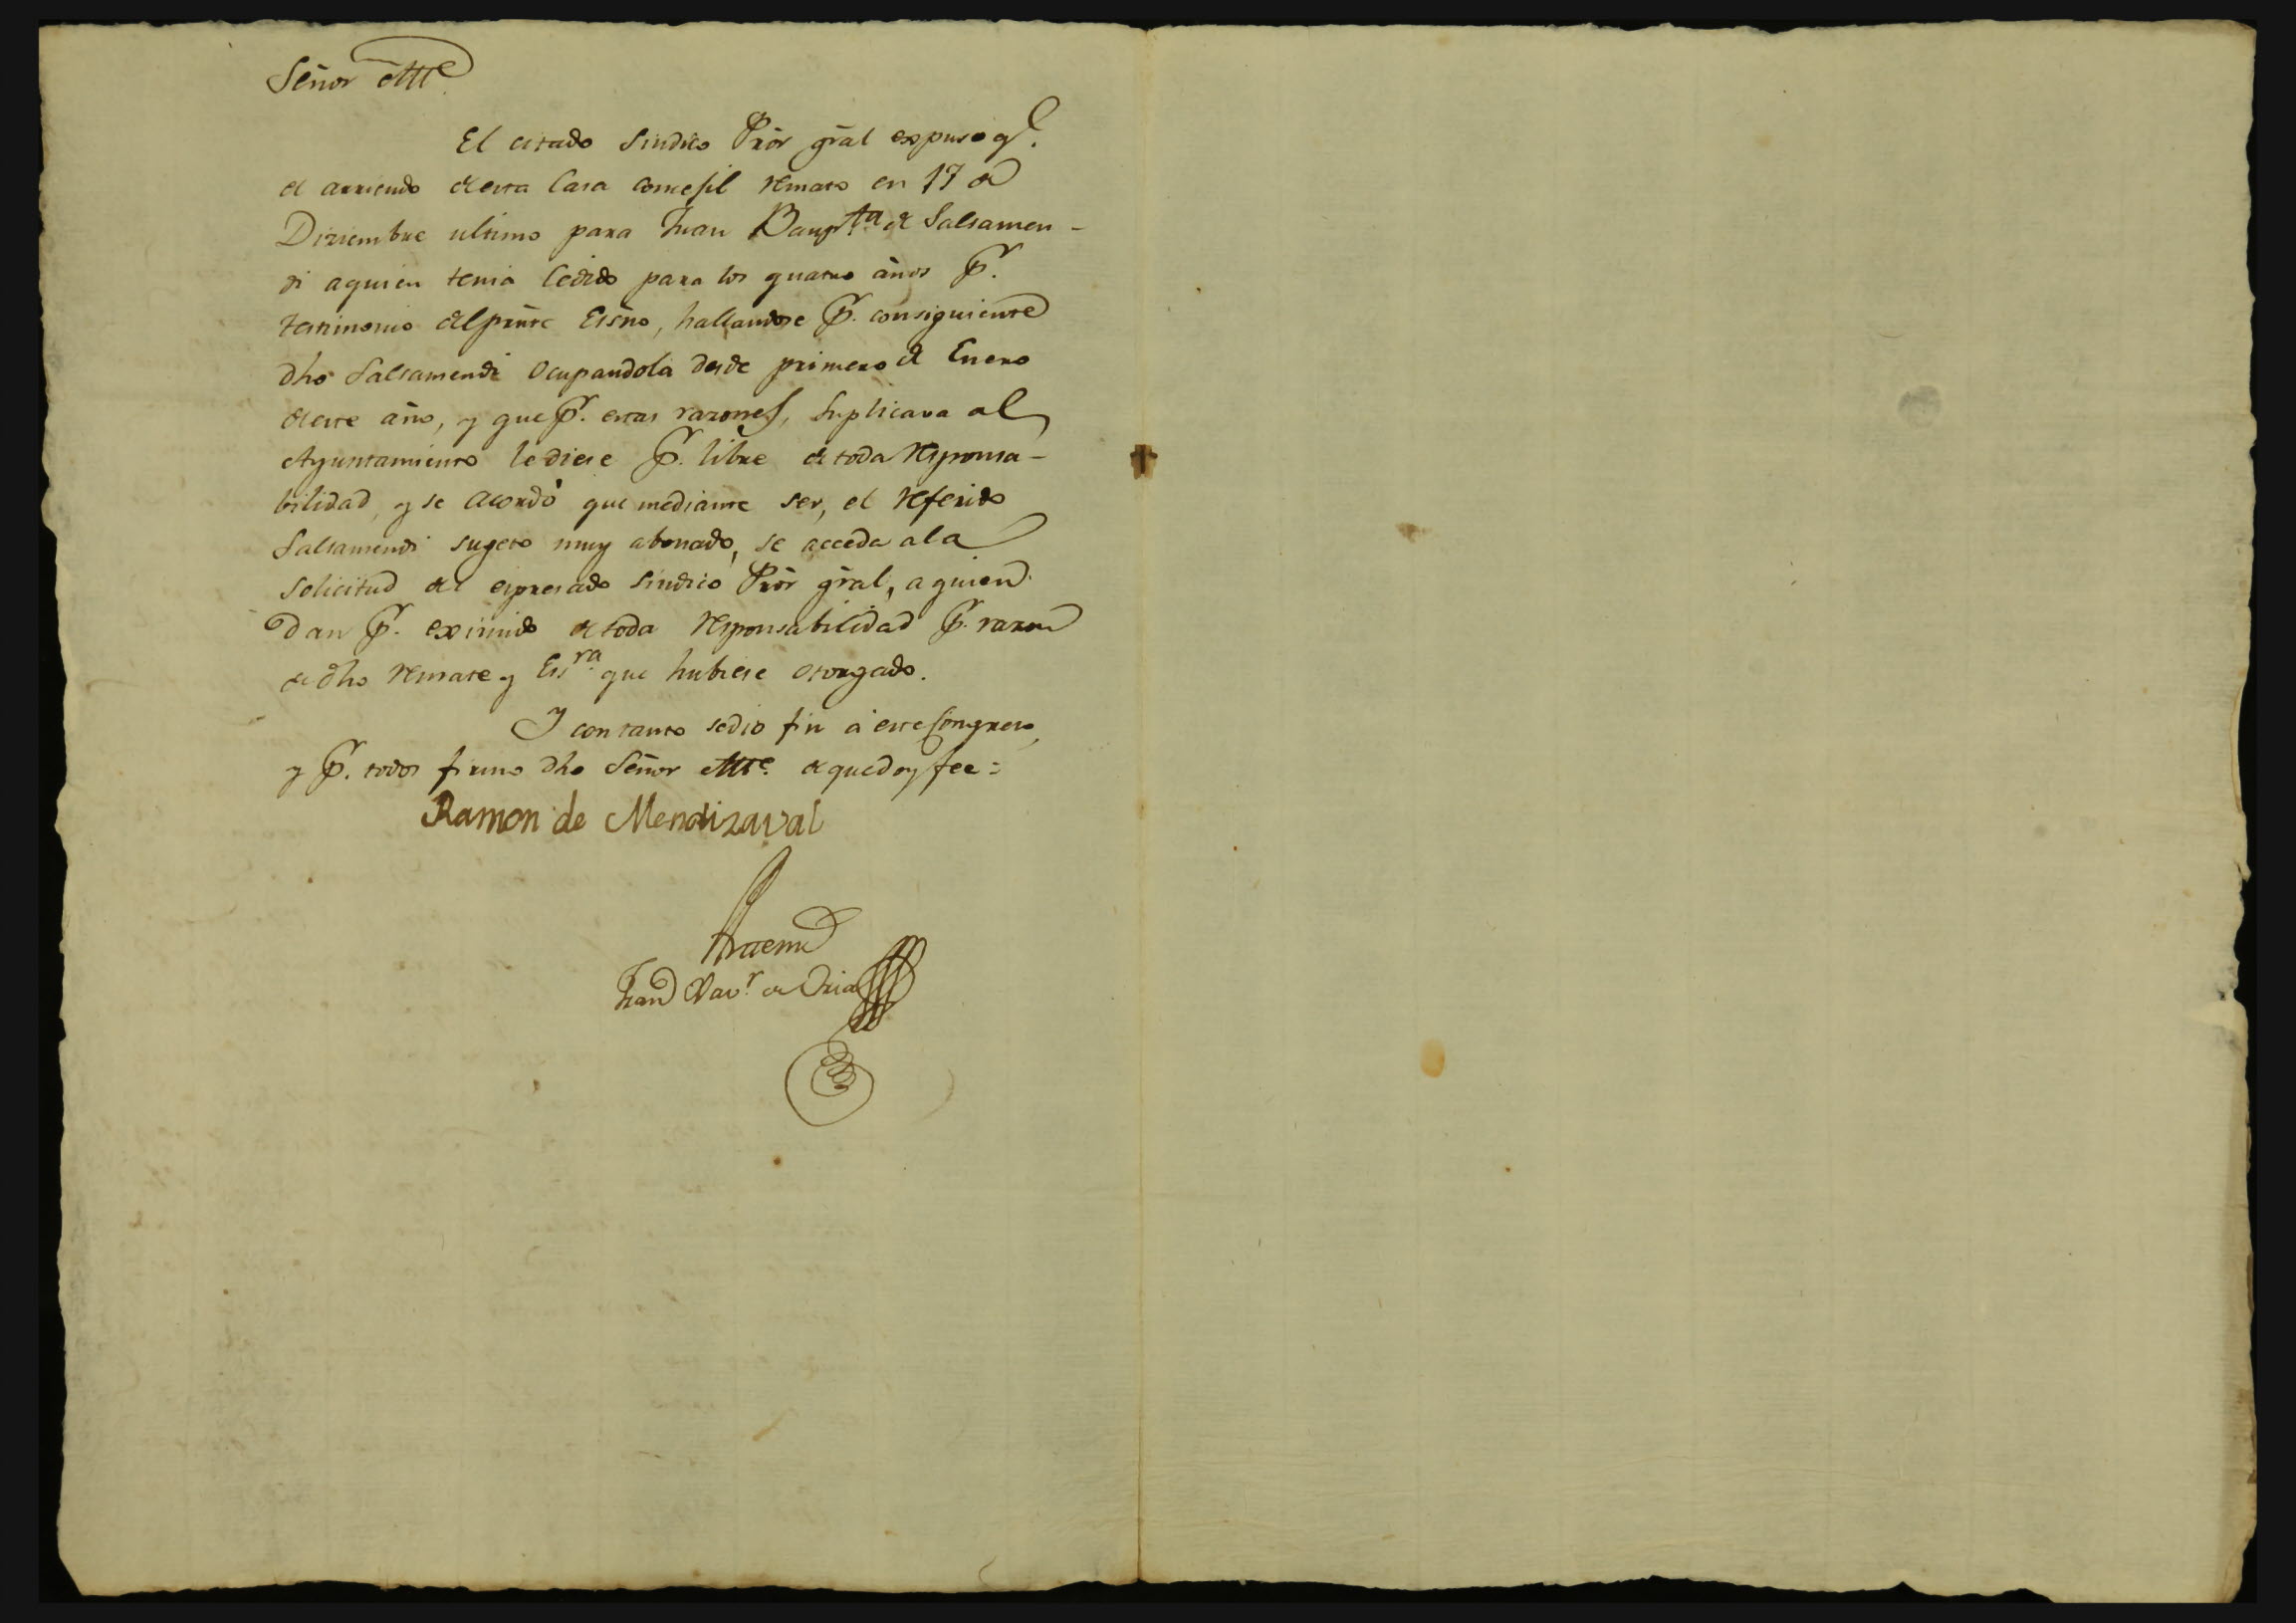 Señor Alle
El citado Sindico Prõr gral expuso q.e
el arriendo de esta Casa Concejil remato en 17 de
Diziembre ultimo para Juan Baup.ta de Salsamen-
di a quien tenia Cedido para los quatro años p.r
testimonio del pnte Essno, hallandose p.r consiguiente
dho Salsamendi Ocupandola desde primero de Enero
de este año, y que p.r estas razones, Suplicava al
Ayuntamiento le diese p.r libre de toda responsa-
bilidad, y se acordó que mediante ser, el referido
Salsamendi sugeto muy abonado, se acceda a la
solicitud del espresado sindico Prõr gral, a quien
dan p.r eximido de toda responsabilidad p.r razon
de dho remate y Ess.ra que hubiese otorgado.
Y con tanto se dio fin á este Congreso,
y p.r todos firmo dho Señor Alle. de que doy fee=
Ramon de Mendizaval
Ante mi
Juan Xav.r de Oria